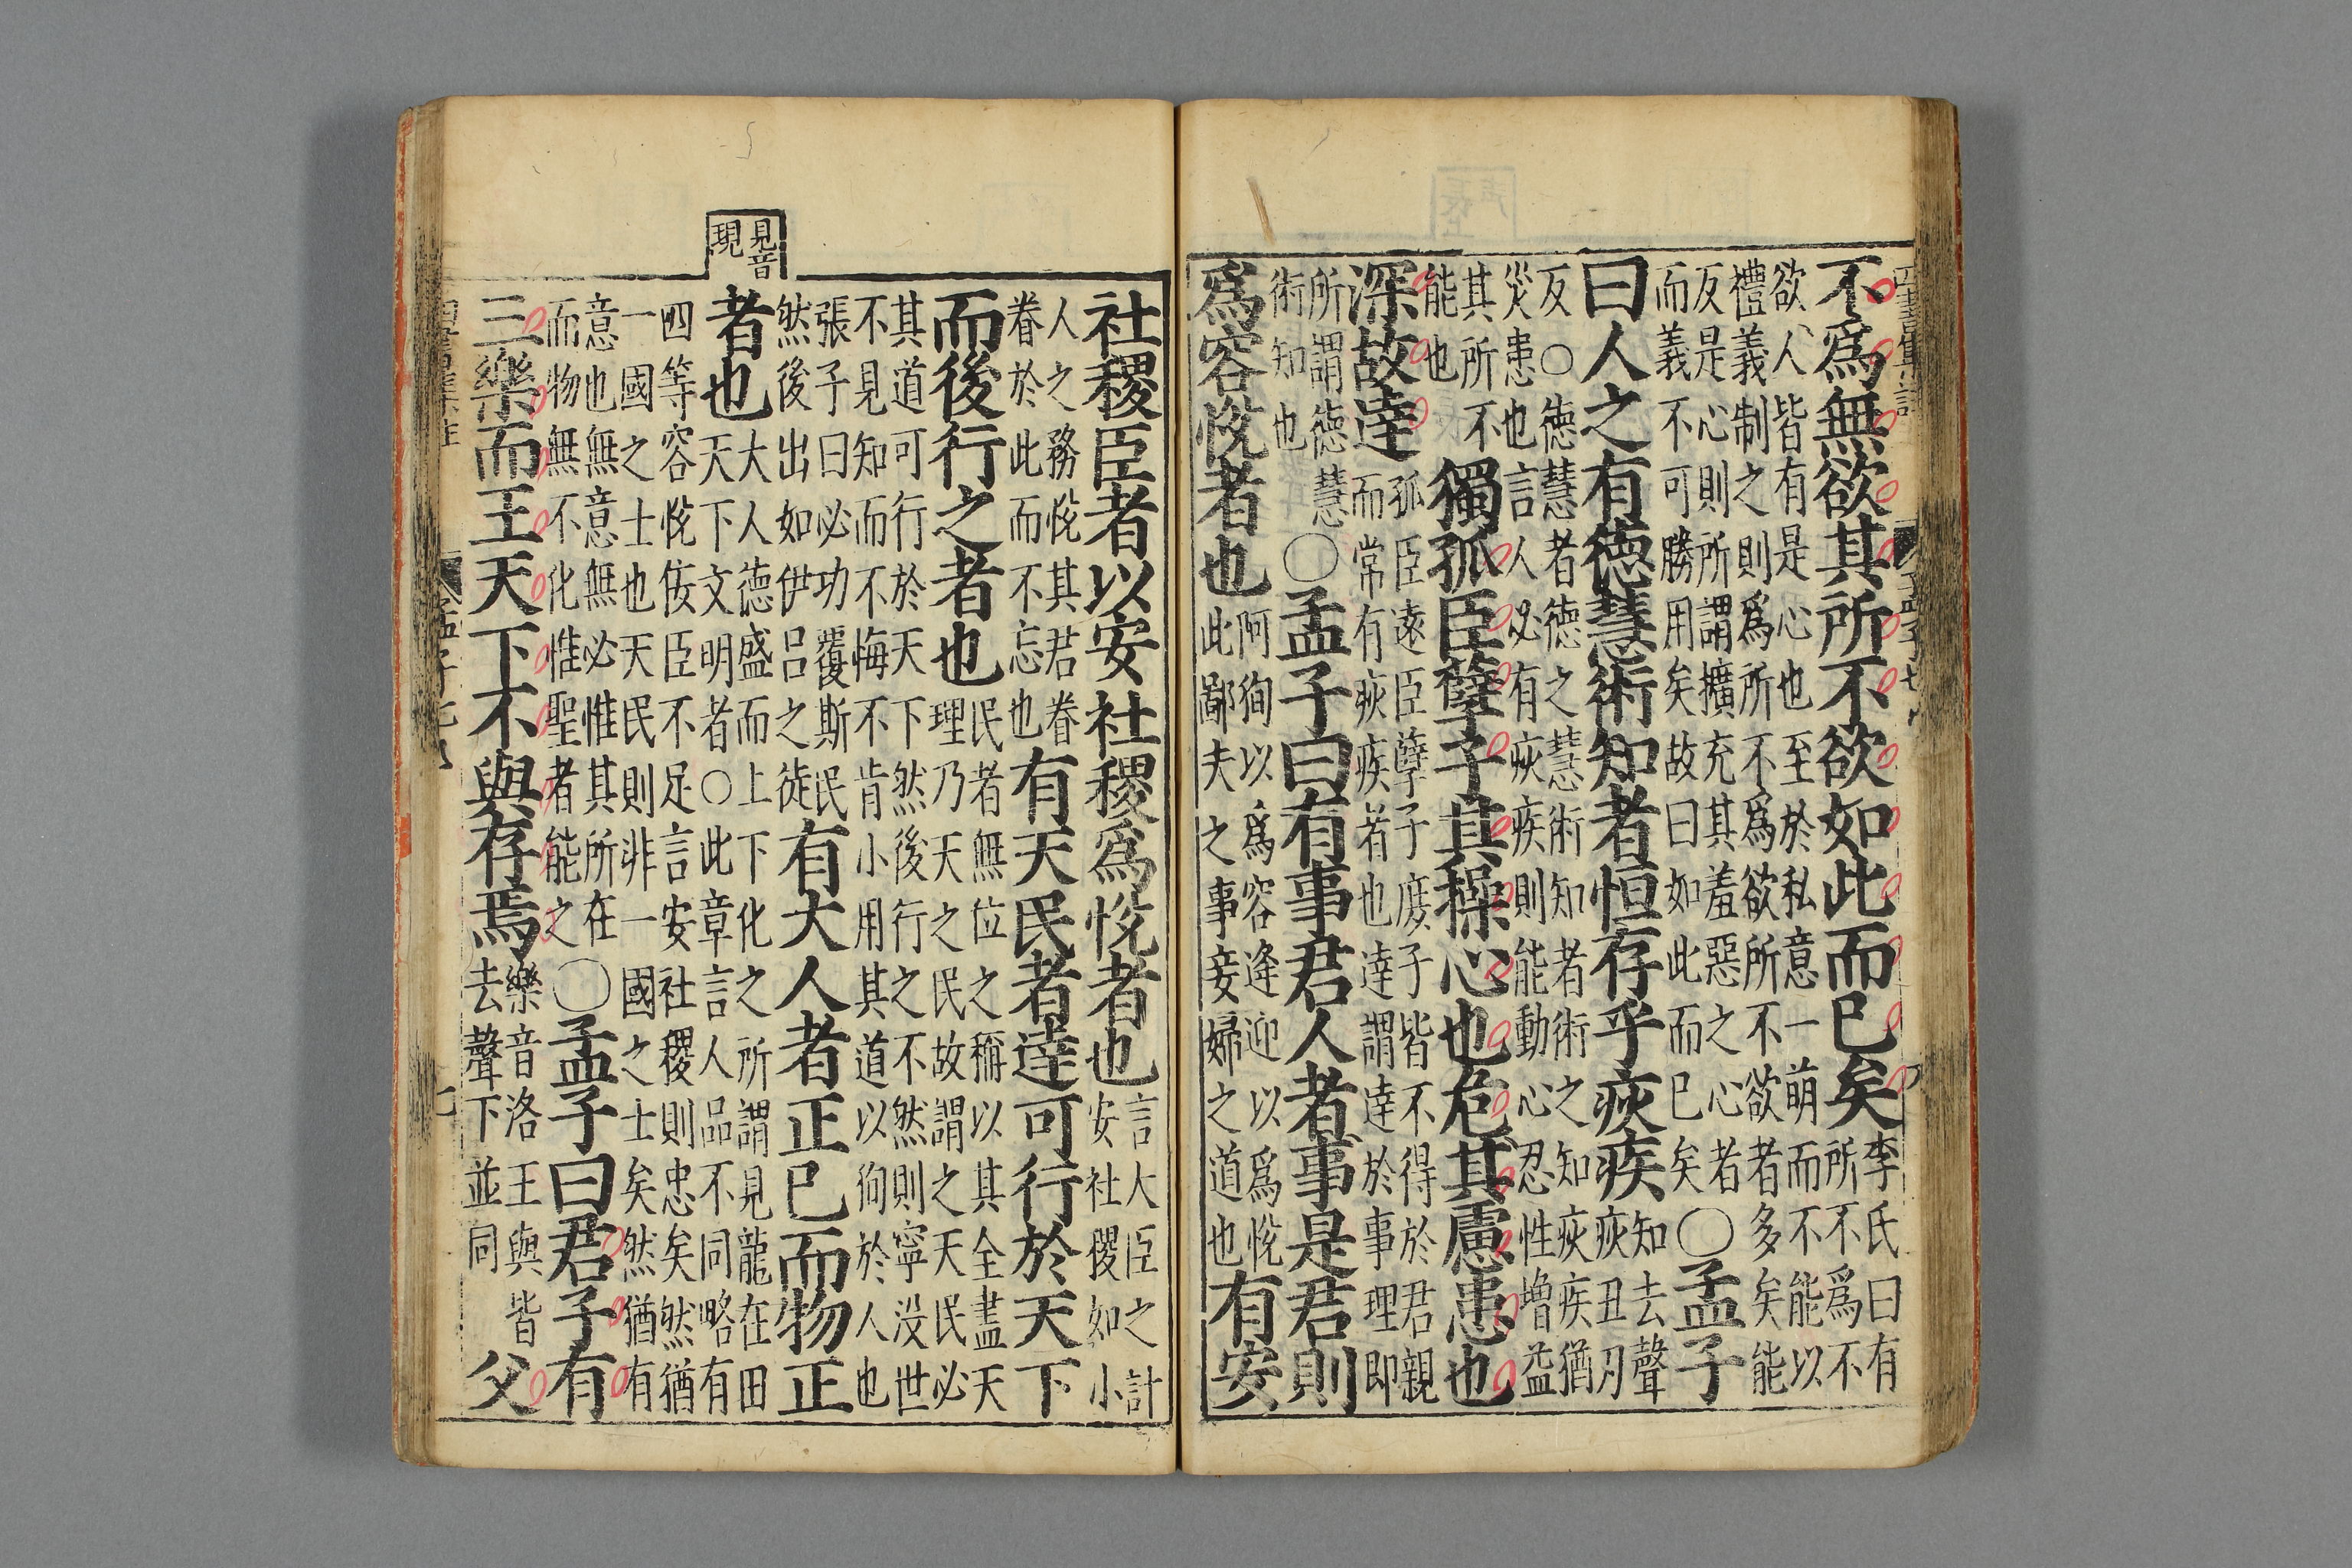 不爲無欲其所不欲如此而已矣
李氏曰有
所不爲不
欲人皆有是心也至於私意一萌而不能以
禮義制之則爲所不爲欲所不欲者多矣能
反是心則所謂擴充其羞惡之心者
而義不可勝用矣故曰如此而已矣
○孟子
曰人之有德慧術知者恒存乎疢疾
知去聲
疢丑刃
反○德慧者德之慧術知者術之知疢疾猶
災患也言人必有疢疾則能動心忍性增益
其所不
能也
獨孤臣孽子其操心也危其慮患也
深故達
孤臣遠臣孽子庶子皆不得於君親
而常有疢疾者也達謂達於事理即
所謂德慧
術知也
○孟子曰有事君人者事是君則
爲容悅者也
阿徇以爲容逢迎以爲悅
此鄙夫之事妾婦之道也
有安
社稷臣者以安社稷爲悅者也
言大臣之計
安社稷如小
人之務悅其君眷
眷於此而不忘也
有天民者達可行於天下
而後行之者也
民者無位之稱以其全盡天
理乃天之民故謂之天民必
其道可行於天下然後行之不然則寧没世
不見知而不悔不肯小用其道以徇於人也
張子曰必功覆斯民
然後出如伊呂之徒
有大人者正己而物正
見音
現
者也
大人德盛而上下化之所謂見龍在田
天下文明者○此章言人品不同略有
四等容悅佞臣不足言安社稷則忠矣然猶
一國之士也天民則非一國之士矣然猶有
意也無意無必惟其所在
而物無不化惟聖者能之
○孟子曰君子有
三樂而王天下不與存焉
樂音洛王與皆
去聲下並同
父